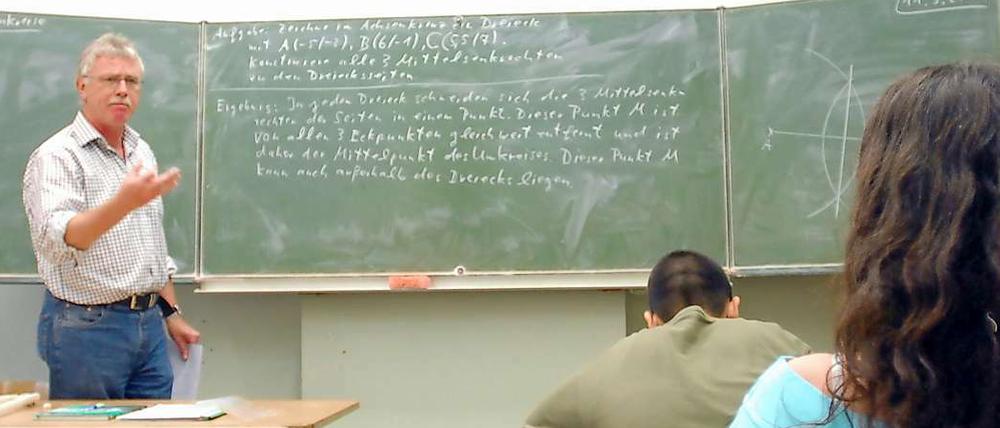 nkreise
Aufgabe: Zeichne im Achsenkreuz ein Dreieck
mit A(-5/-2), B(6/-1), C(5,5/7).
Konstruiere alle 3 Mittelsenkrechten
zu den Dreiecksseiten
Ergebnis: In jedem Dreieck schneiden sich die 3 Mittelsenk-
rechten der Seiten in einem Punkt. Dieser Punkt M ist
von allen 3 Eckpunkten gleichweit entfernt und ist
daher der Mittelpunkt des Umkreises. Dieser Punkt M
kann auch außerhalb des Dreiecks liegen.
A